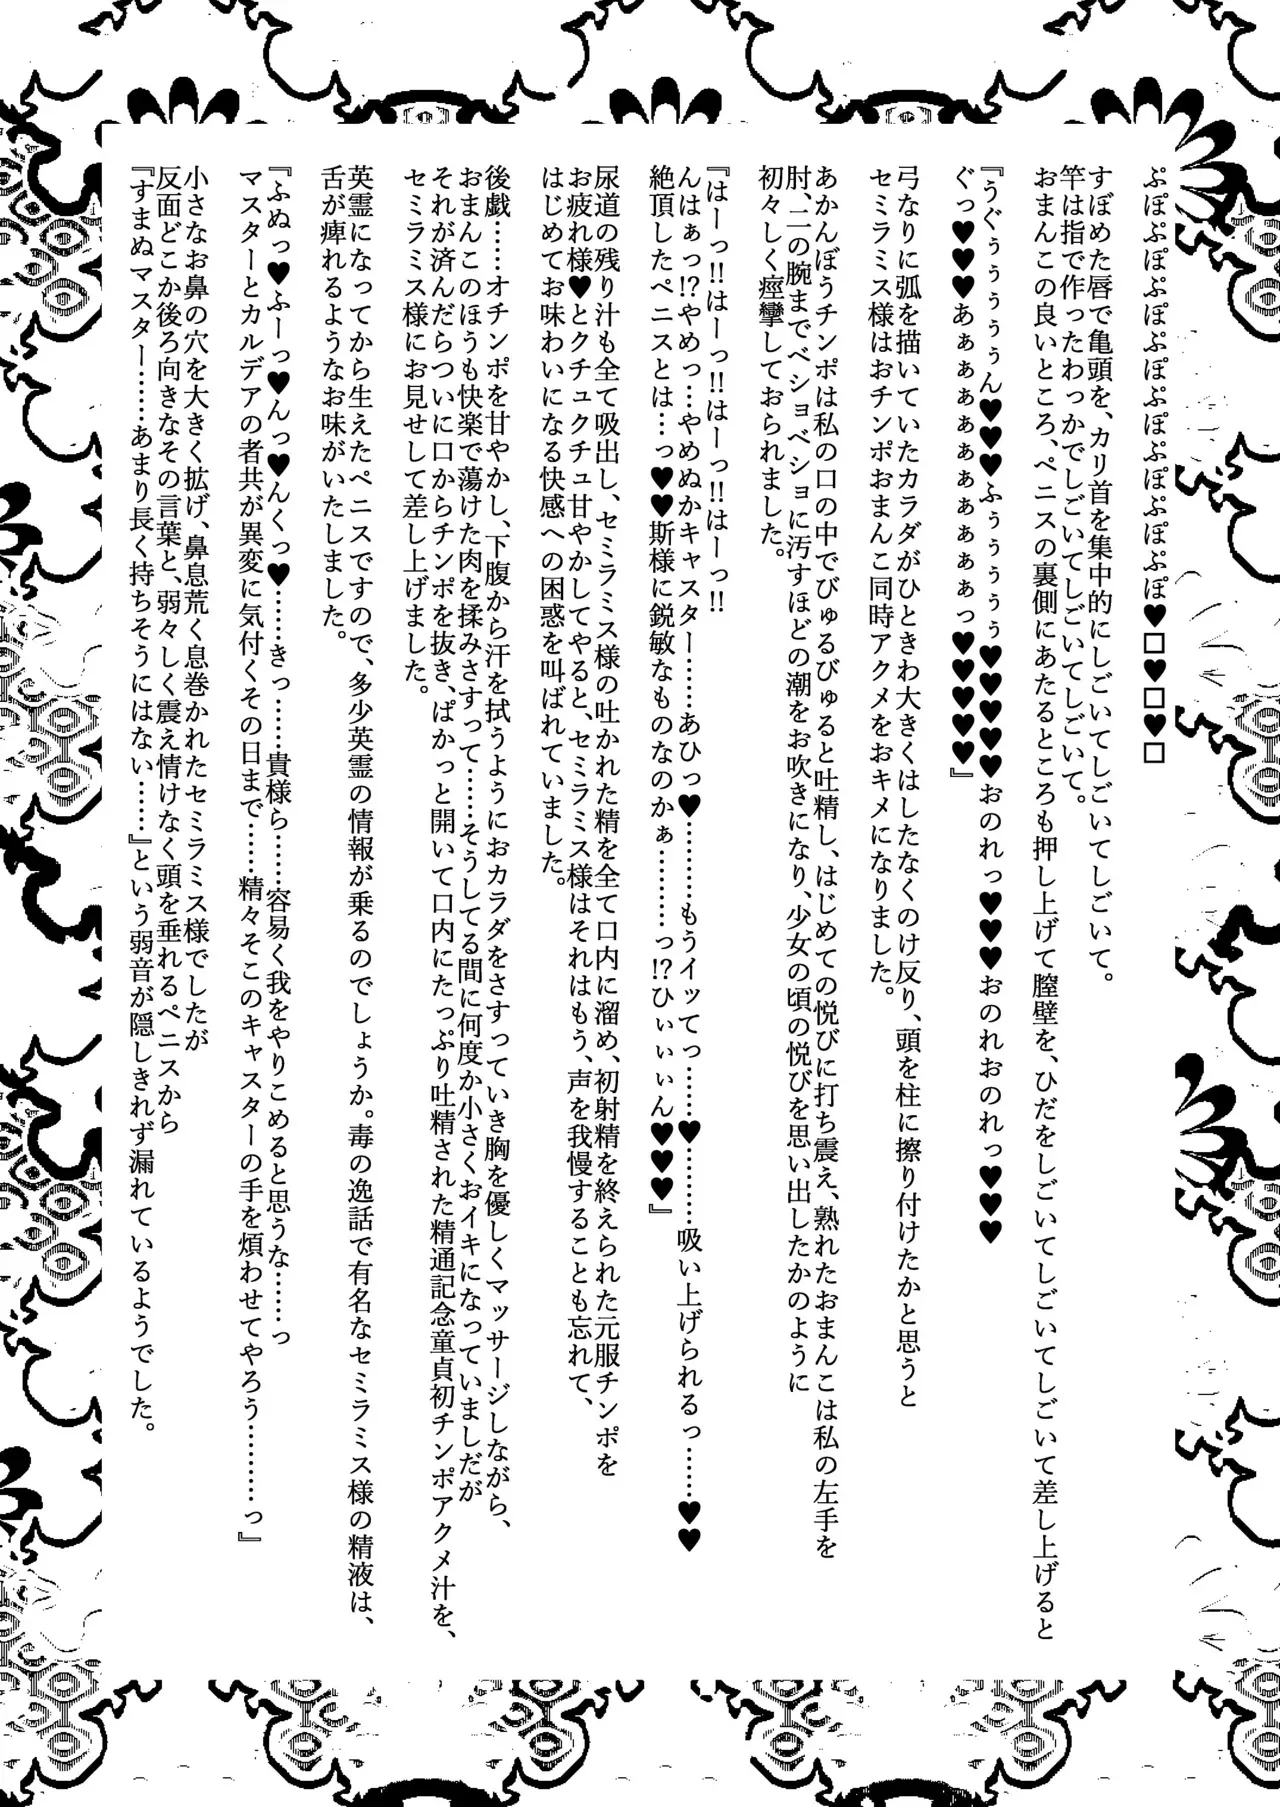 ぷぽぷぽぷぽぷぽぷぽぷぽぷぽぷぽ♥□♥□♥□
すぼめた唇で亀頭を、カリ首を集中的にしごいてしごいてしごいて。
竿は指で作ったわっかでしごいてしごいてしごいて。
おまんこの良いところ、ペニスの裏側にあたるところも押し上げて膣壁を、ひだをしごいてしごいてしごいて差し上げると
『うぐぅぅぅぅぅん♥♥♥ふぅぅぅぅぅ♥♥♥♥♥おのれっ♥♥♥おのれおのれっ♥♥♥
ぐっ♥♥♥♥あぁぁぁぁぁぁぁぁぁぁっ♥♥♥♥♥』
弓なりに弧を描いていたカラダがひときわ大きくはしたなくのけ反り、頭を柱に擦り付けたかと思うと
セミラミス様はおチンポおまんこ同時アクメをおキメになりました。
あかんぼうチンポは私の口の中でびゅるびゅると吐精し、はじめての悦びに打ち震え、熟れたおまんこは私の左手を
肘、二の腕までベショベショに汚すほどの潮をお吹きになり、少女の頃の悦びを思い出したかのように
初々しく痙攣しておられました。
『はーっ!!はーっ!!はーっ!!はーっ!!
んはぁっ!?やめっ…やめぬかキャスター……あひっ♥…………もうイッてっ……♥…………吸い上げられるっ……♥♥
絶頂したペニスとは…っ♥♥斯様に鋭敏なものなのかぁ…………っ!?ひぃぃぃん♥♥♥』
尿道の残り汁も全て吸出し、セミラミス様の吐かれた精を全て口内に溜め、初射精を終えられた元服チンポを
お疲れ様♥とクチュクチュ甘やかしてやると、セミラミス様はそれはもう、声を我慢することも忘れて、
はじめてお味わいになる快感への困惑を叫ばれていました。
後戯……オチンポを甘やかし、下腹から汗を拭うようにおカラダをさすっていき胸を優しくマッサージしながら、
おまんこのほうも快楽で蕩けた肉を揉みさすって……そうしてる間に何度か小さくおイキになっていましだが
それが済んだらついに口からチンポを抜き、ぱかっと開いて口内にたっぷり吐精された精通記念童貞初チンポアクメ汁を、
セミラミス様にお見せして差し上げました。
英霊になってから生えたペニスですので、多少英霊の情報が乗るのでしょうか。毒の逸話で有名なセミラミス様の精液は、
舌が痺れるようなお味がいたしました。
『ふぬっ♥ふーっ♥んっ♥んくっ♥……きっ……貴様ら……容易く我をやりこめると思うな……っ
マスターとカルデアの者共が異変に気付くその日まで……精々そこのキャスターの手を煩わせてやろう…………っ』
小さなお鼻の穴を大きく拡げ、鼻息荒く息巻かれたセミラミス様でしたが
反面どこか後ろ向きなその言葉と、弱々しく震え情けなく頭を垂れるペニスから
『すまぬマスター……あまり長く持ちそうにはない……』という弱音が隠しきれず漏れているようでした。